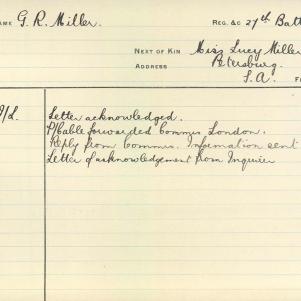 NAME G. R. Miller. REG. &c 27th Batt
NEXT OF KIN Miss Lucy Miller
ADDRESS Petersburg.
S.A.
/L. Letter acknowledged.
P/Cable forwarded Commrs London.
Reply from Commrs. Information sent
Letter of acknowledgement from Inquirer